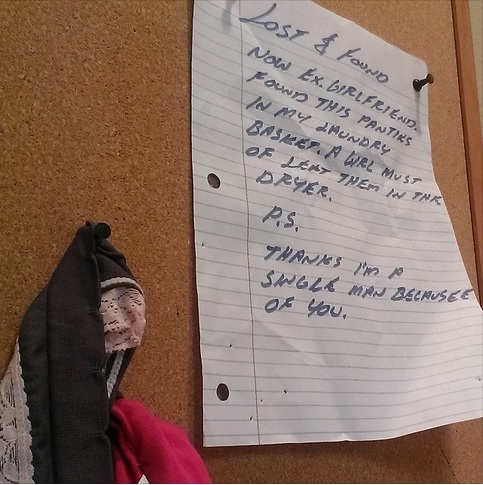 LOST & FOUND
NOW EX.GIRLFRIEND.
FOUND THIS PANTIES
IN MY LAUNDRY
BASKET. A GIRL MUST
OF LEFT THEM IN THE
DRYER.
P.S.
THANKS I'M A
SINGLE MAN BECAUSEE
OF YOU.